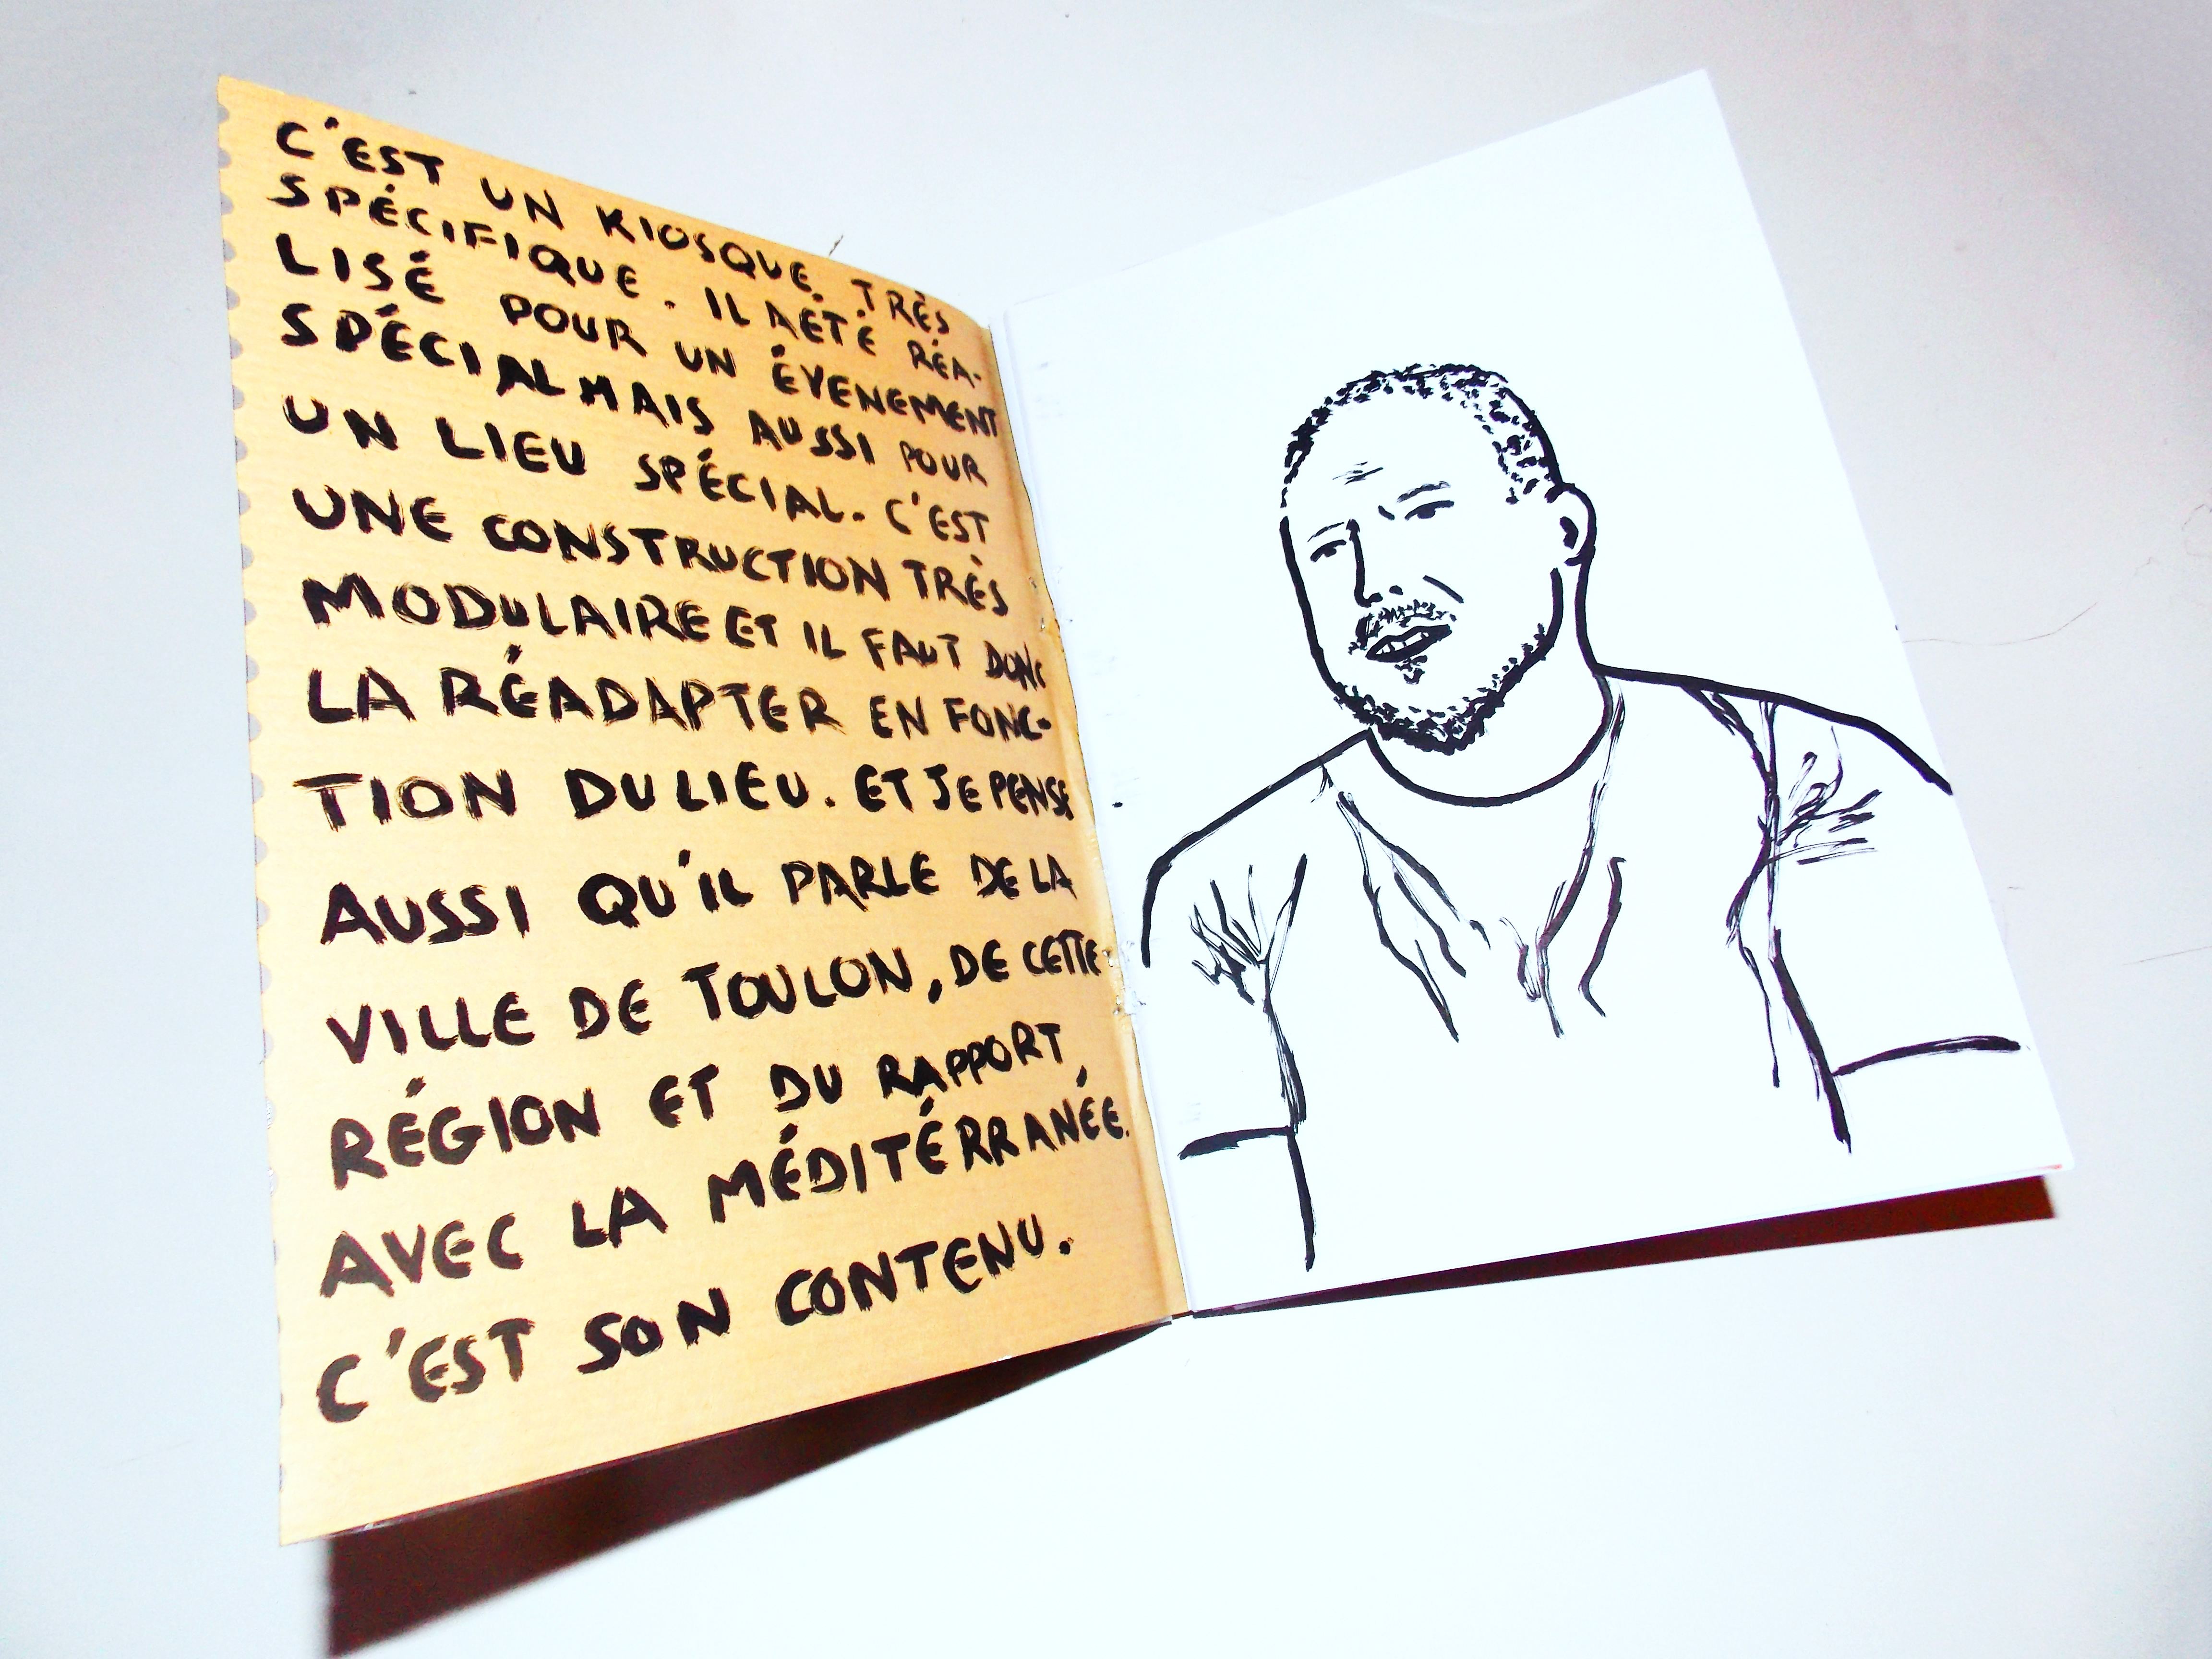 C'EST UN KIOSQUE TRÈS
SPÉCIFIQUE. IL A ÉTÉ RÉA-
LISÉ POUR UN ÉVENEMENT
SPÉCIAL MAIS AUSSI POUR
UN LIEU SPÉCIAL. C'EST
UNE CONSTRUCTION TRÈS
MODULAIRE ET IL FAUT DONC
LA RÉADAPTER EN FONC-
TION DU LIEU. ET JE PENSE
AUSSI QU'IL PARLE DE LA
VILLE DE TOULON, DE CETTE
RÉGION ET DU RAPPORT
AVEC LA MÉDITÉRRANÉE.
C'EST SON CONTENU.